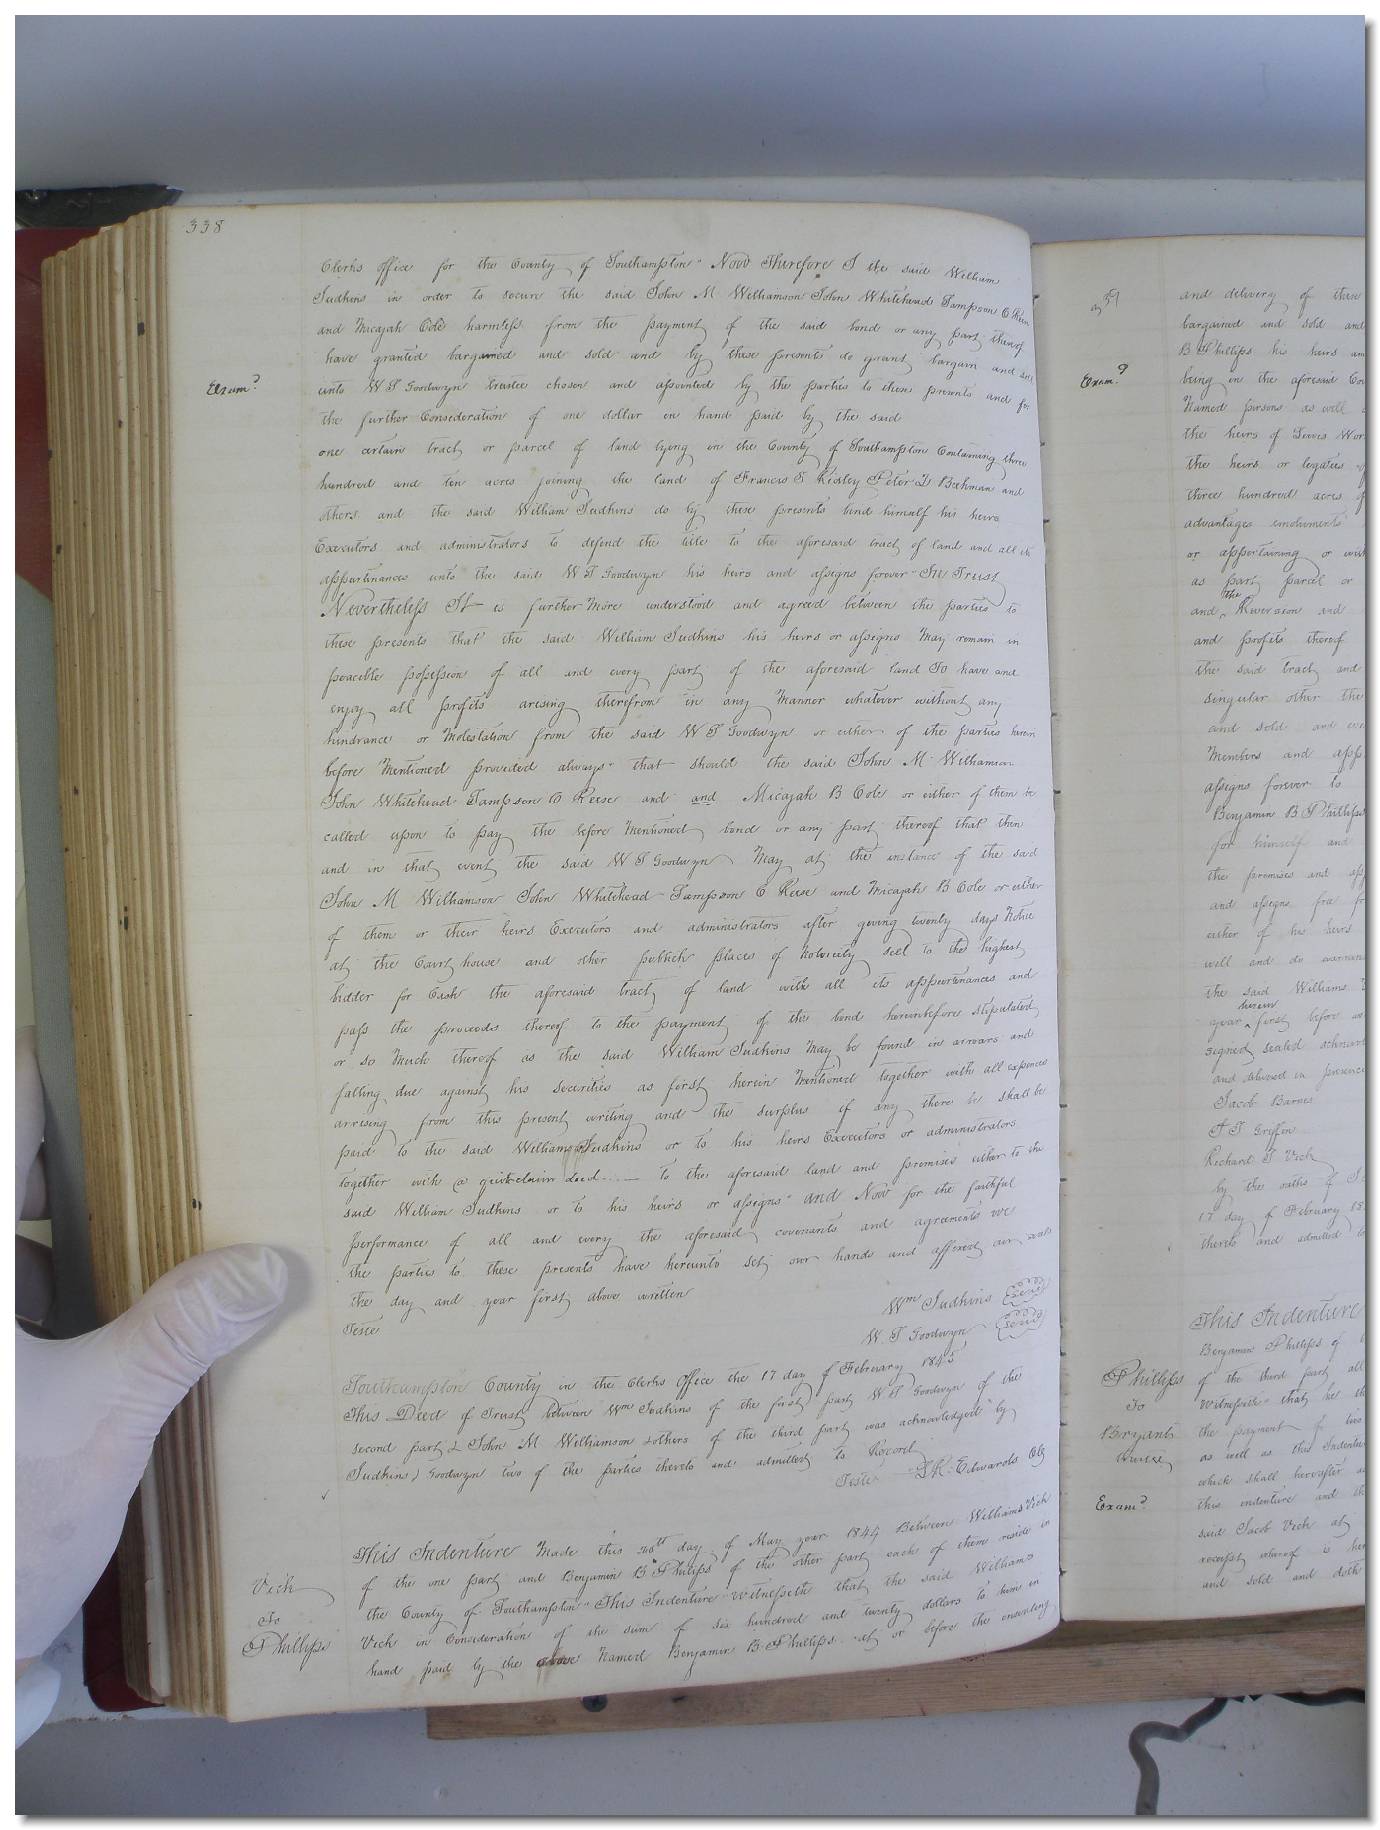 338
Clerks office for the County of Southampton" Now Therefore I the said William
Judkins in order to secure the said John M Williamson John Whitehead Sampson C Reese
and Micajah Cole harmless from the payment of the said bond or any part thereof
have granted bargained and sold and by these presents do grant bargain and sell
Exam.d
unto W T Goodwyn trustee chosen and appointed by the parties to these presents and for
the further Consideration of one dollar in hand paid by the said
one certain tract or parcel of land lying in the County of Southampton Containing three
hundred and ten acres joining the land of Francis Ridley Peter Beckman and
others and the said William Judkins do by these presents bind himself his heirs
Executors and administrators to defend the title to the aforesaid tract of land and all its
appurtenances unto the said W T Goodwyn his heirs and assigns forever" In Trust
Nevertheless It is further More understood and agreed between the parties to
these presents that the said William Judkins his heirs or assigns May remain in
peaceible possession of all and every part of the aforesaid land To have and
enjoy all profits arising therefrom in any Manner whatever without any
hindrance or Molestation from the said W T Goodwyn or either of the parties herein
before Mentioned provided always" that should the said John M Williamson
John Whitehead Sampson C Reese and and Micajah B Cole or either of them be
called upon to pay the before Mentioned bond or any part thereof that then
and in that event the said W T Goodwyn May at the instance of the said
John M Williamson John Whitehead Sampson C Reese and Micajah B Cole or either
of them or their heirs Executors and administrators after giving twenty days Notice
at the Court house and other publick places of Notoriety sell to the highest
bidder for Cash the aforesaid tract of land with all its appurtenances and
pass the proceeds thereof to the payment of the bond hereinbefore stipulated
or so Much thereof as the said William Judkins May be found in arrears and
falling due against his securities as first herein Mentioned together with all expences
arrising from this present writing and the surplus if any there be shall be
paid to the said William Judkins or to his heirs Executors or administrators
together with a quit claim deed to the aforesaid land and premises either to the
said William Judkins or to his heirs or assigns" And Now for the faithful
performance of all and every the aforesaid covenants and agreements we
the parties to these presents have hereunto set our hands and affixed our seals
the day and year first above written
Teste
Wm Judkins seal
W. T Goodwyn seal
Southampton County in the Clerks Office the 17 day of February 1845
This Deed of Trust between Wm Judkins of the first part W T Goodwyn of the
second part & John M Williamson & others of the third part was acknowledged by
Judkins & Goodwyn two of the parties thereto and admitted to Record
Teste L R Edwards Clk
Vick
To
Phillips
This Indenture Made this day of May year 1844 Between Williams Vick
of the one part and Benjamin B Phillips of the other part each of them reside in
the County of Southampton" This Indenture Witnesseth that the said Williams
Vick in Consideration of the sum of six hundred and twenty dollars to him in
hand paid by the above Named Benjamin B. Phillips at or before the ensealing
and delivery of these
bargained and sold and
B Phillips his heirs
Exam.d
being in the aforesaid
Named persons as well
the heirs of
the heirs or legatees
three hundred acres
advantages emoluments
or appertaining or
as part parcel or
and the Reversion and
and profits thereof
the said tract and
singular other the
and sold and
Members and
assigns forever to
Benjamin B Phillips
for himself and
the premises and
and assigns
either of his heirs
well and do
the said Williams
year herein first before
signed sealed
and delivered in presence
Jacob Barnes
Griffin
Richard T Vick
by the oaths of
17 day of February
thereto and admitted
This Indenture
Benjamin Phillips of
Phillips
To
Bryant
of the third part all
Witnesseth that he
the payment of
as well as this Indenture
which shall hereafter
Exam.d
this indenture and
said Jacob Vick at
receipt whereof is
and sold and doth